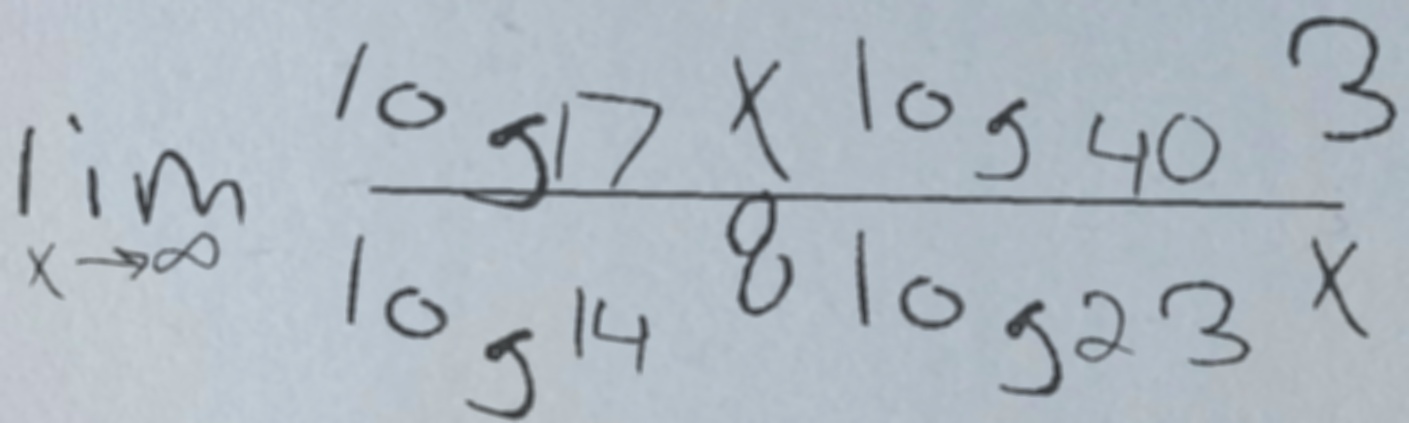 lim x→∞ (log₁₇ x log₄₀ 3) / (log₁₄ 8 log₂₃ x)